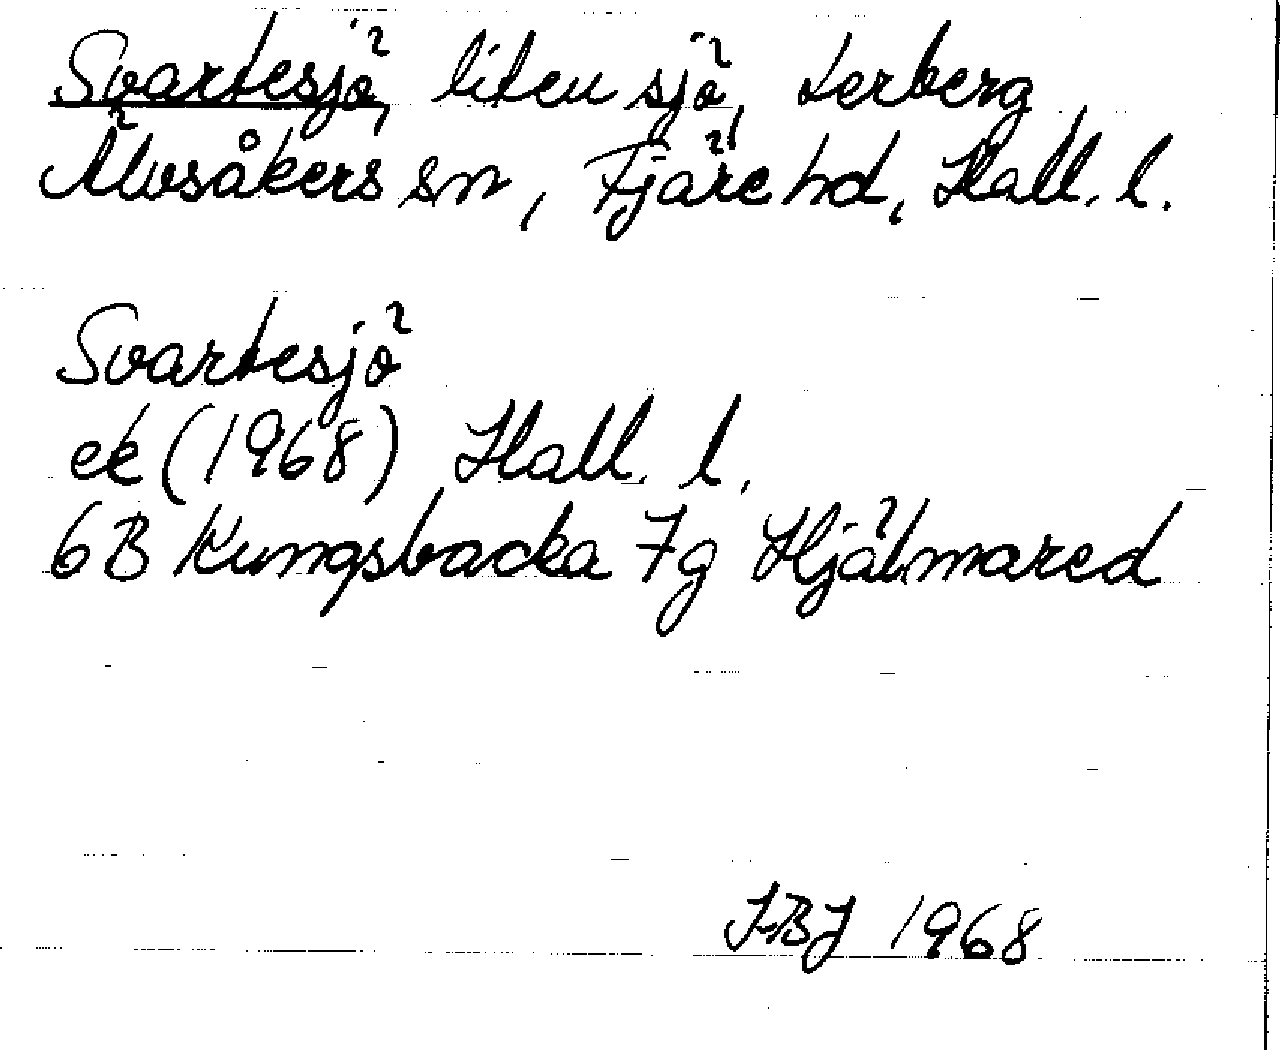 Svartesjö, liten sjö, Lerberg
Älvsåkers sn, Fjäre hd, Hall. l.
Svartesjö
ek (1968) Hall. l.
6B Kungsbacka 7g Hjälmared
1968